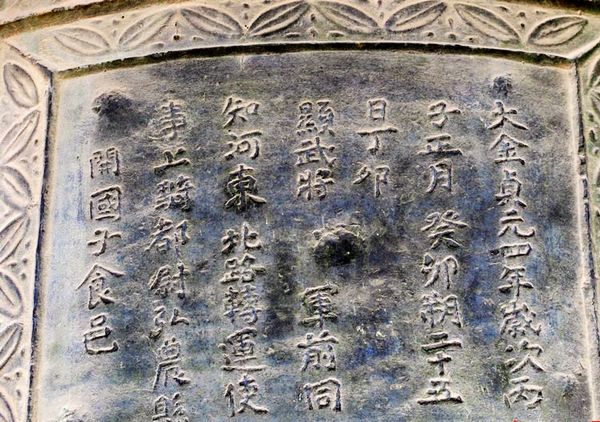 大金貞元四年歲次丙
子正月癸卯朔二十五
日丁卯
顯武將軍前同
知河東北路轉運使
事上騎都尉弘農縣
開國子食邑